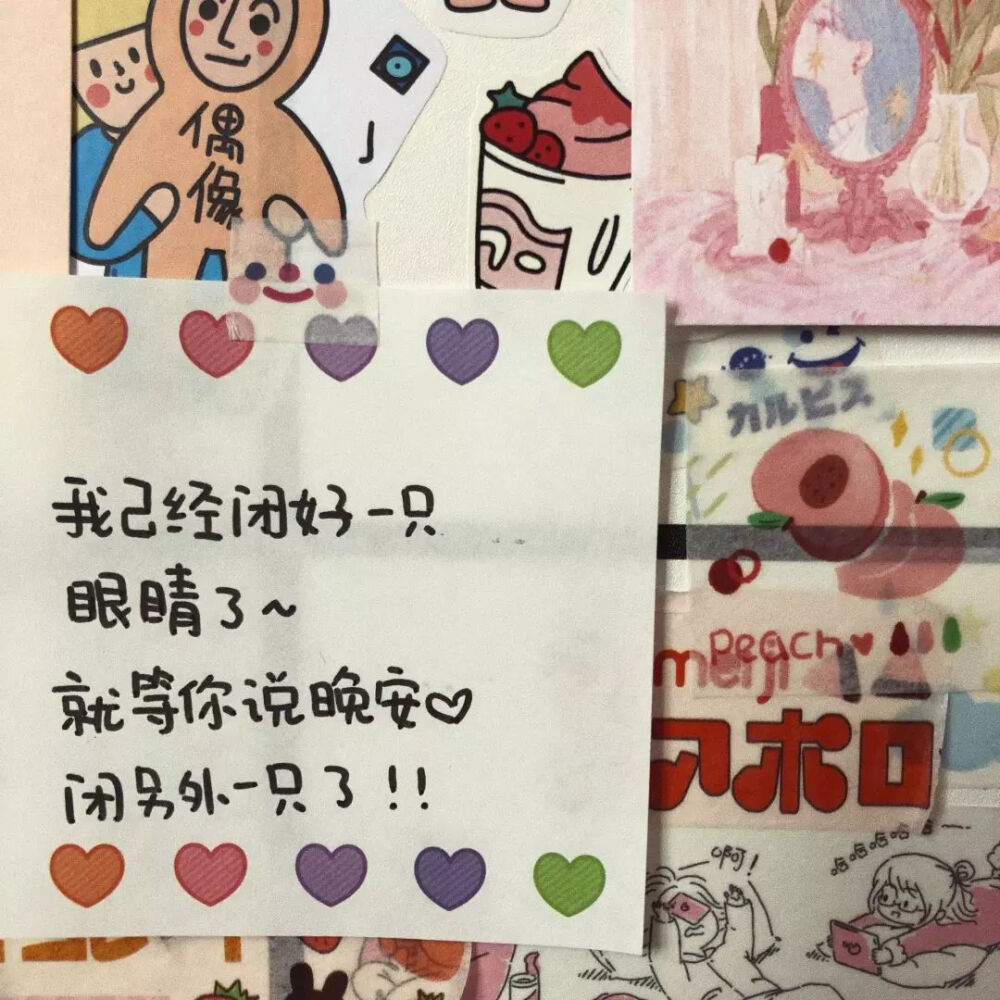 偶
像
我己经闭好一只
眼睛了~
就等你说晚安♡
闭另外一只了!!
カルピス
Peach
meiji
アポロ
啊!
哈哈哈哈哈